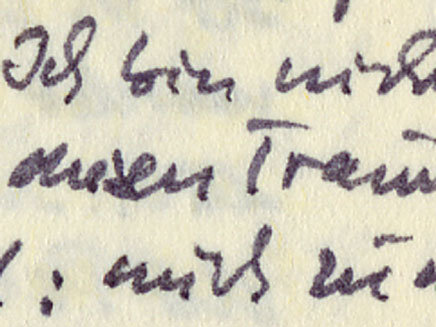 Ich bin nich
diesen Traum
: mich zu